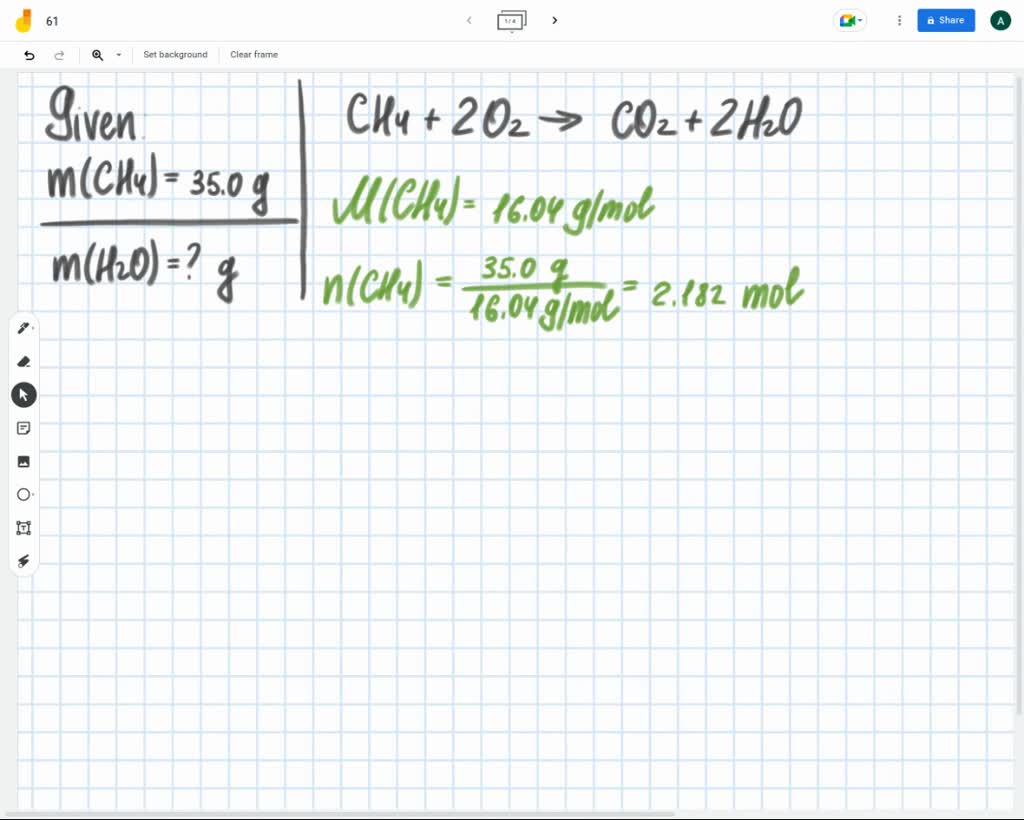 61
1/4
Share
A
Set background
Clear frame
Given:
m(CH4) = 35.0 g
m(H2O) = ? g
CH4 + 2O2 → CO2 + 2H2O
M(CH4) = 16.04 g/mol
n(CH4) = 35.0 g / 16.04 g/mol = 2.182 mol